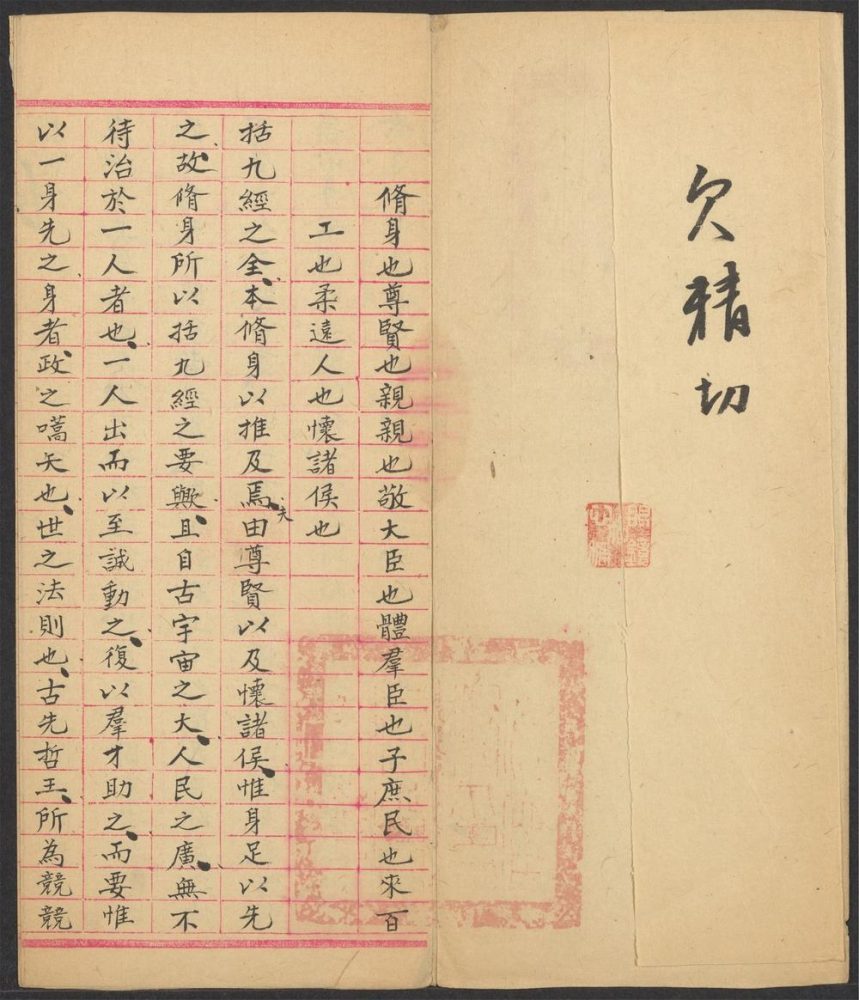 欠精切
脩身也尊賢也親親也敬大臣也體羣臣也子庶民也來百
工也柔遠人也懷諸侯也
括九經之全、本脩身以推及焉、夫由尊賢以及懷諸侯、惟身足以先
之、故脩身所以括九經之要歟、且自古宇宙之大、人民之廣、無不
待治於一人者也、一人出而以至誠動之、復以羣才助之、而要惟
以一身先之、身者、政之嚆矢也、世之法則也、古先哲王、所為競競